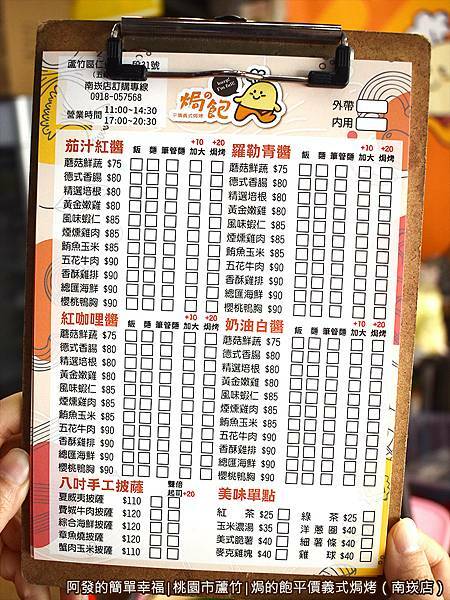 蘆竹區仁
南崁店訂購專線
0918-057568
營業時間 11:00~14:30
17:00~20:30
焗の飽
平價義式焗烤
外帶
內用
茄汁紅醬 飯 麵 筆管麵 +10加大 +20焗烤
蘑菇鮮蔬 $75
德式香腸 $80
精選培根 $80
黃金嫩雞 $80
風味蝦仁 $85
煙燻雞肉 $85
鮪魚玉米 $85
五花牛肉 $90
香酥雞排 $90
總匯海鮮 $90
櫻桃鴨胸 $90
羅勒青醬 飯 麵 筆管麵 +10加大 +20焗烤
蘑菇鮮蔬 $75
德式香腸 $80
精選培根 $80
黃金嫩雞 $80
風味蝦仁 $85
煙燻雞肉 $85
鮪魚玉米 $85
五花牛肉 $90
香酥雞排 $90
總匯海鮮 $90
櫻桃鴨胸 $90
紅咖哩醬 飯 麵 筆管麵 +10加大 +20焗烤
蘑菇鮮蔬 $80
德式香腸 $85
精選培根 $85
黃金嫩雞 $85
風味蝦仁 $90
煙燻雞肉 $90
鮪魚玉米 $90
五花牛肉 $90
香酥雞排 $90
總匯海鮮 $90
櫻桃鴨胸 $90
奶油白醬 飯 麵 筆管麵 +10加大 +20焗烤
蘑菇鮮蔬 $75
德式香腸 $80
精選培根 $80
黃金嫩雞 $80
風味蝦仁 $85
煙燻雞肉 $85
鮪魚玉米 $85
五花牛肉 $90
香酥雞排 $90
總匯海鮮 $90
櫻桃鴨胸 $90
八吋手工披薩 雙倍起司+20
夏威夷披薩 $110
費城牛肉披薩 $120
綜合海鮮披薩 $120
章魚燒披薩 $120
蟹肉玉米披薩 $110
美味單點
紅茶 $25 綠茶 $25
玉米濃湯 $35 洋蔥圈 $40
美式脆薯 $40 細薯條 $40
麥克雞塊 $40 雞球 $40
阿發的簡單幸福|桃園市蘆竹|焗的飽平價義式焗烤(南崁店)